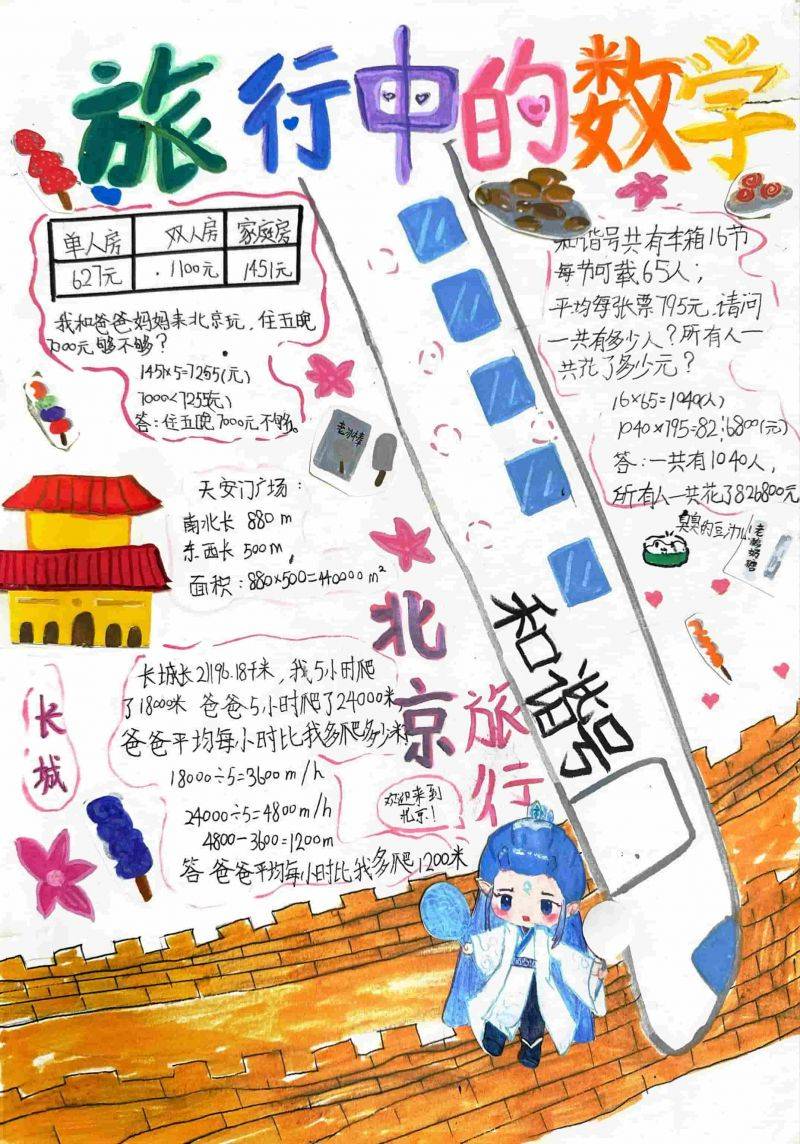 旅行中的数学
单人房 双人房 家庭房
627元 1100元 1451元
我和爸爸妈妈来北京玩,住五晚
7000元够不够?
1451×5=7255(元)
7000<7255(元)
答:住五晚7000元不够。
和谐号共有车箱16节
每节可载65人;
平均每张票795元,请问
一共有多少人?所有人一
共花了多少元?
16×65=1040(人)
1040×795=826800(元)
答:一共有1040人,
所有人一共花了826800元
老冰棒
天安门广场:
南北长 880m
东西长 500m
面积:880×500=440000m²
臭臭的豆汁儿
北京
旅行
和谐号
长城
长城长21196.18千米,我5小时爬
了18000米 爸爸5小时爬了24000米
爸爸平均每小时比我多爬多少米?
18000÷5=3600m/h
24000÷5=4800m/h
4800-3600=1200m
答 爸爸平均每小时比我多爬1200米
欢迎来到
北京!